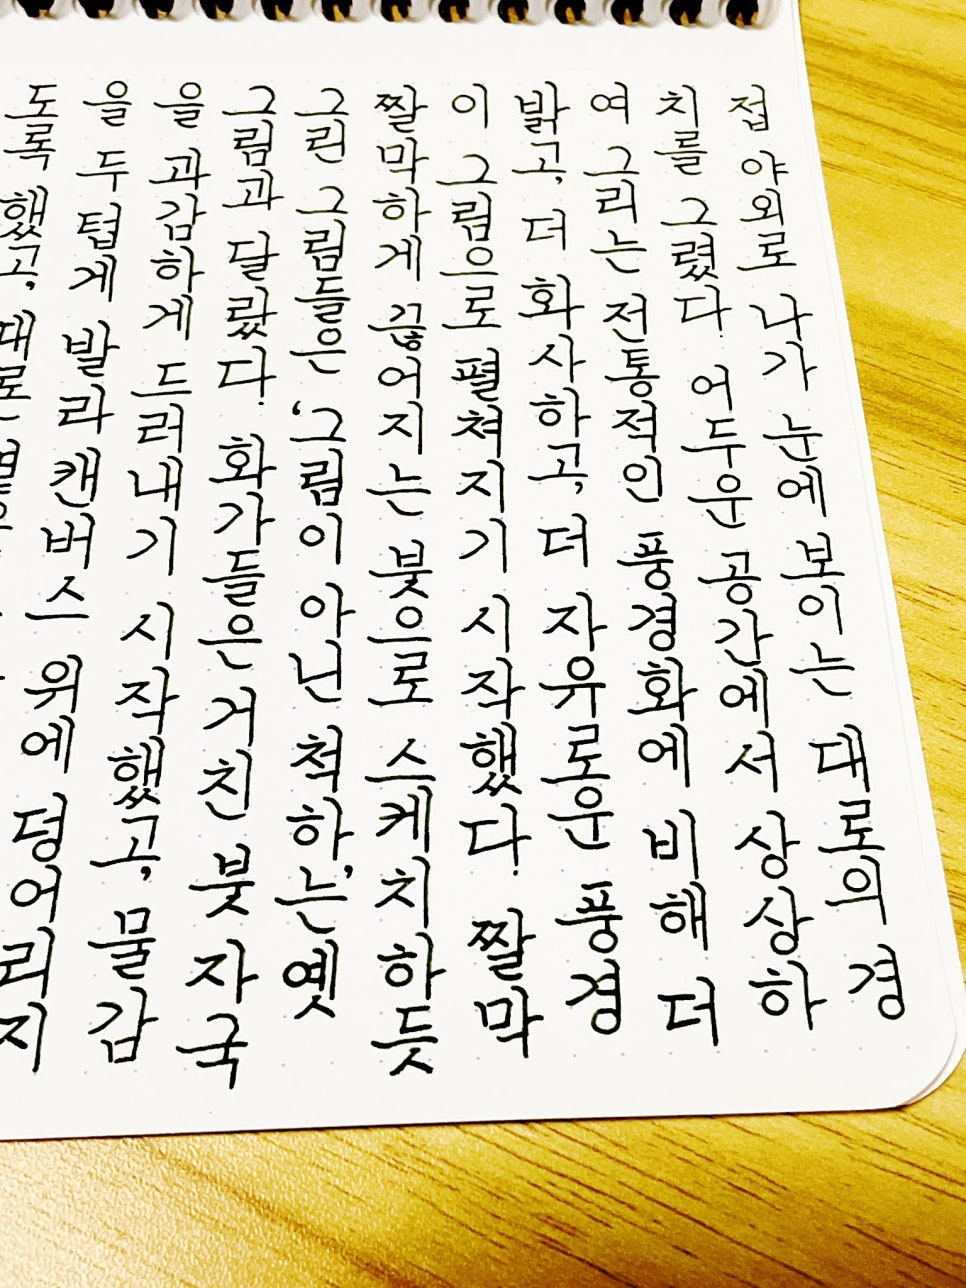 접 야외로 나가 눈에 보이는 대로의 경
치를 그렸다. 어두운 공간에서 상상하
여 그리는 전통적인 풍경화에 비해 더
밝고, 더 화사하고, 더 자유로운 풍경
이 그림으로 펼쳐지기 시작했다. 짤막
짤막하게 끊어지는 붓으로 스케치하듯
그린 그림들은 ‘그림이 아닌 척하’는 옛
그림과 달랐다. 화가들은 거친 붓 자국
을 과감하게 드러내기 시작했고, 물감
을 두텁게 발라 캔버스 위에 덩어리지
도록 했고,